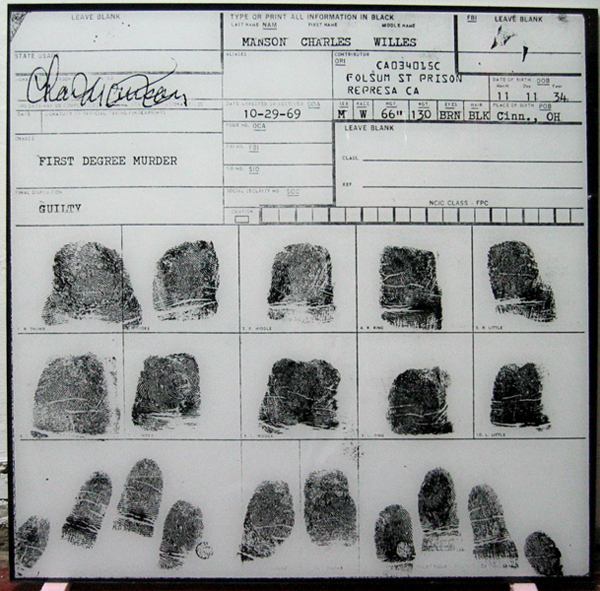 LEAVE BLANK
TYPE OR PRINT ALL INFORMATION IN BLACK
LAST NAME NAM FIRST NAME MIDDLE NAME
FBI LEAVE BLANK
MANSON CHARLES WILLES
STATE USAGE
ALIASES
CONTRIBUTOR
ORI
CA034015C
FOLSUM ST PRISON
REPRESA CA
DATE OF BIRTH DOB
Month Day Year
11 11 34
DATE ARRESTED OR RECEIVED DOA
SEX RACE HGT WGT EYES HAIR PLACE OF BIRTH POB
10-29-69 M W 66" 130 BRN BLK Cinn., OH
DATE
YOUR NO. OCA
LEAVE BLANK
CHARGE
FIRST DEGREE MURDER
FBI NO. FBI
CLASS
SID NO. SID
REF
FINAL DISPOSITION
SOCIAL SECURITY NO. SOC
NCIC CLASS - FPC
GUILTY
CAUTION
1. R. THUMB
3. R. MIDDLE
4. R. RING
5. R. LITTLE
10. L. LITTLE